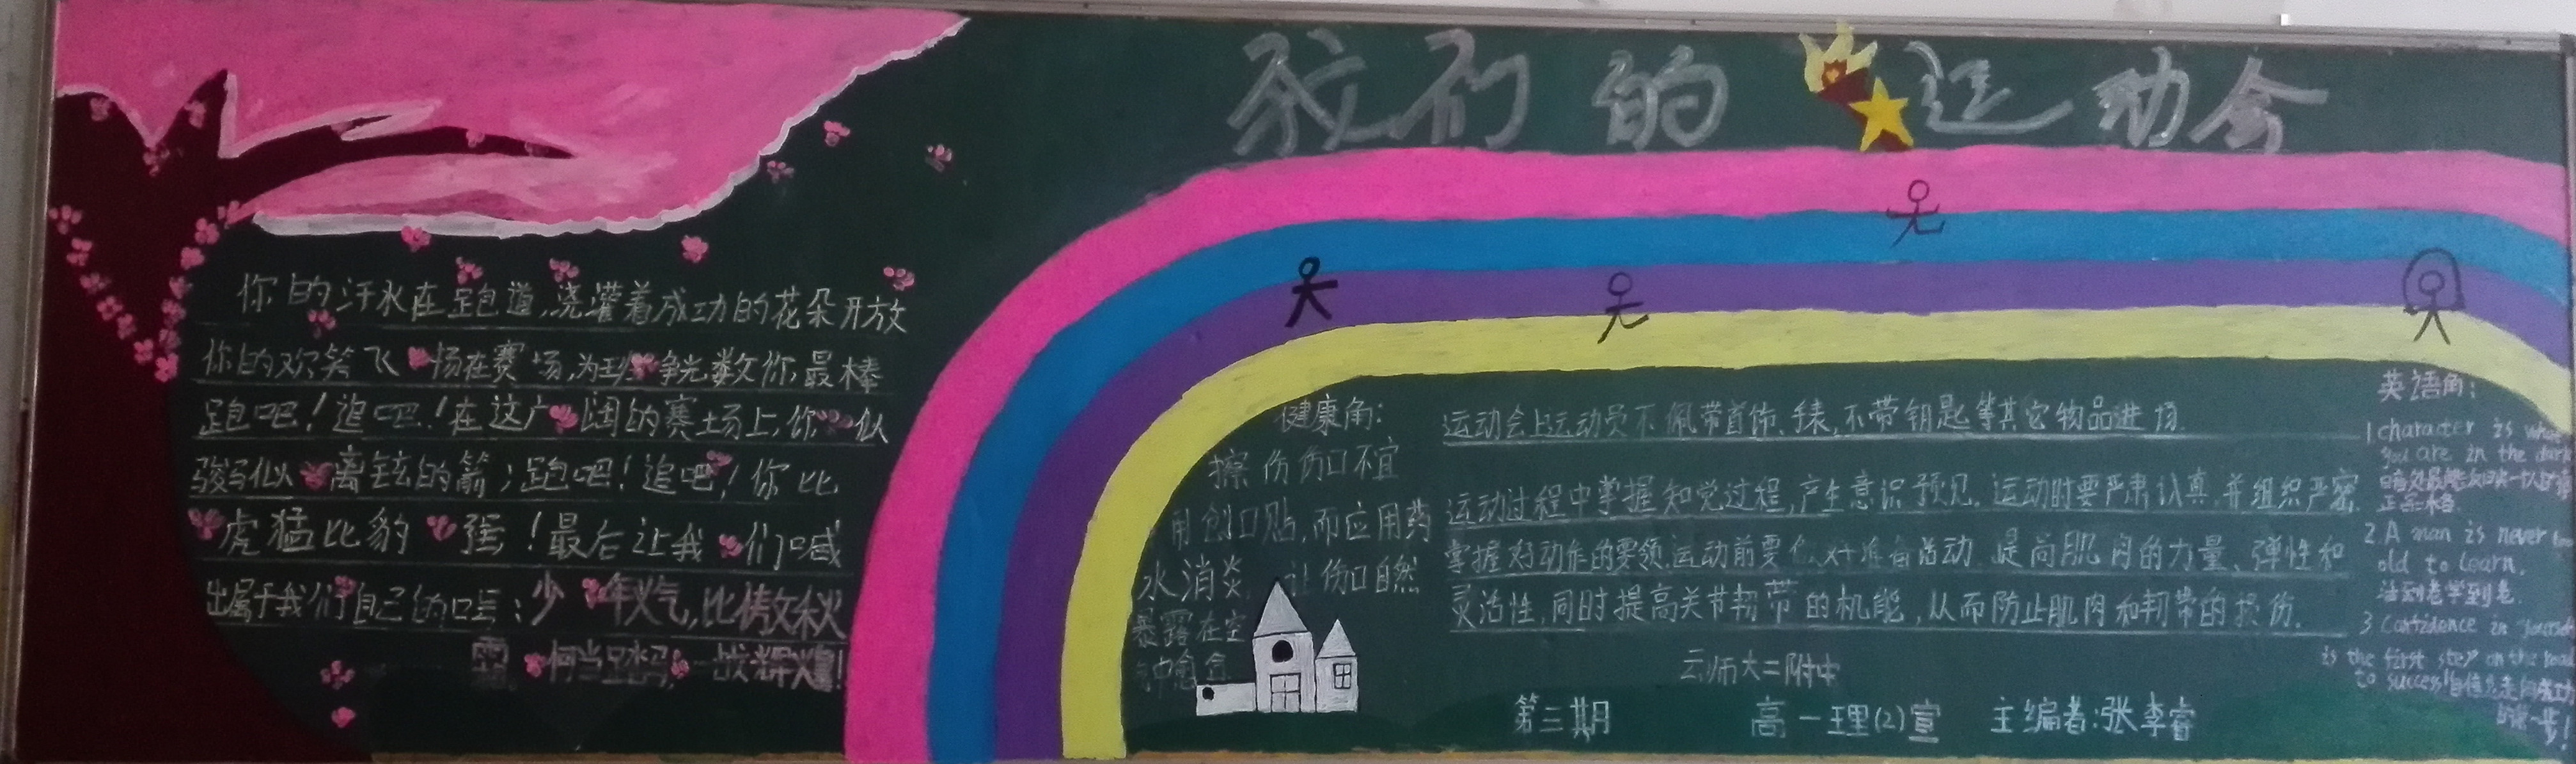 我们的运动会
你的汗水在跑道,浇灌着成功的花朵开放
你的欢笑飞扬在赛场,为班争光数你最棒
跑吧!追吧!在这广阔的赛场上,你似
骏马似离弦的箭;跑吧!追吧!你比
虎猛比豹强!最后让我们喊
出属于我们自己的口号:少年火气,比傲秋
霜 何当踏马,一战辉煌!
健康角:
擦伤伤口不宜
用创口贴,而应用药
水消炎,让伤口自然
暴露在空
气中愈合
运动会上运动员不佩带首饰、手表,不带钥匙等其它物品进场.
运动过程中掌握知觉过程,产生意识预见.运动时要严肃认真,并组织严密.
掌握好动作的要领.运动前要做好准备活动.提高肌肉的力量、弹性和
灵活性,同时提高关节韧带的机能,从而防止肌肉和韧带的损伤.
云师大二附中
第三期 高一理(2)宣 主编者:张李睿
英语角:
1 character is what
you are in the dark
正品格.
2.A man is never too
old to learn.
活到老学到老.
3 Confidence in yourself
is the first step on the road
to success!自信是走向成功
的第一步!